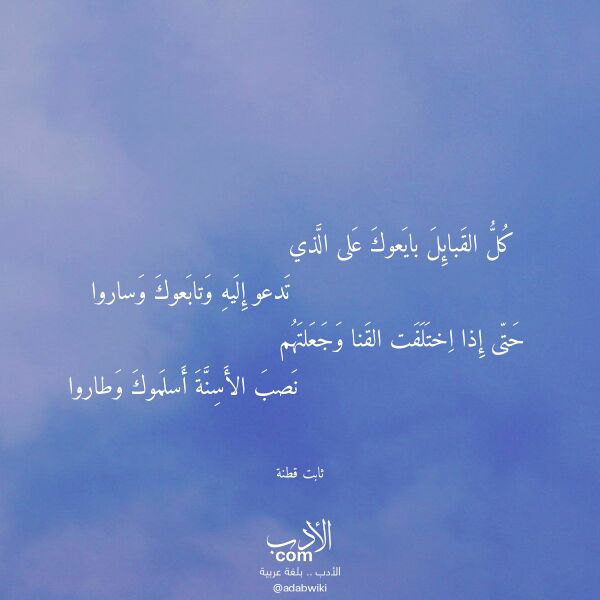 كُلُّ القَبائِلَ بايَعوكَ عَلى الَّذي
تَدعو إِلَيهِ وَتابَعوكَ وَساروا
حَتّى إِذا اِختَلَفَت القَنا وَجَعَلتَهُم
نَصبَ الأَسِنَّةَ أَسلَموكَ وَطاروا
ثابت قطنة
الأدب
com
الأدب .. بلغة عربية
@adabwiki